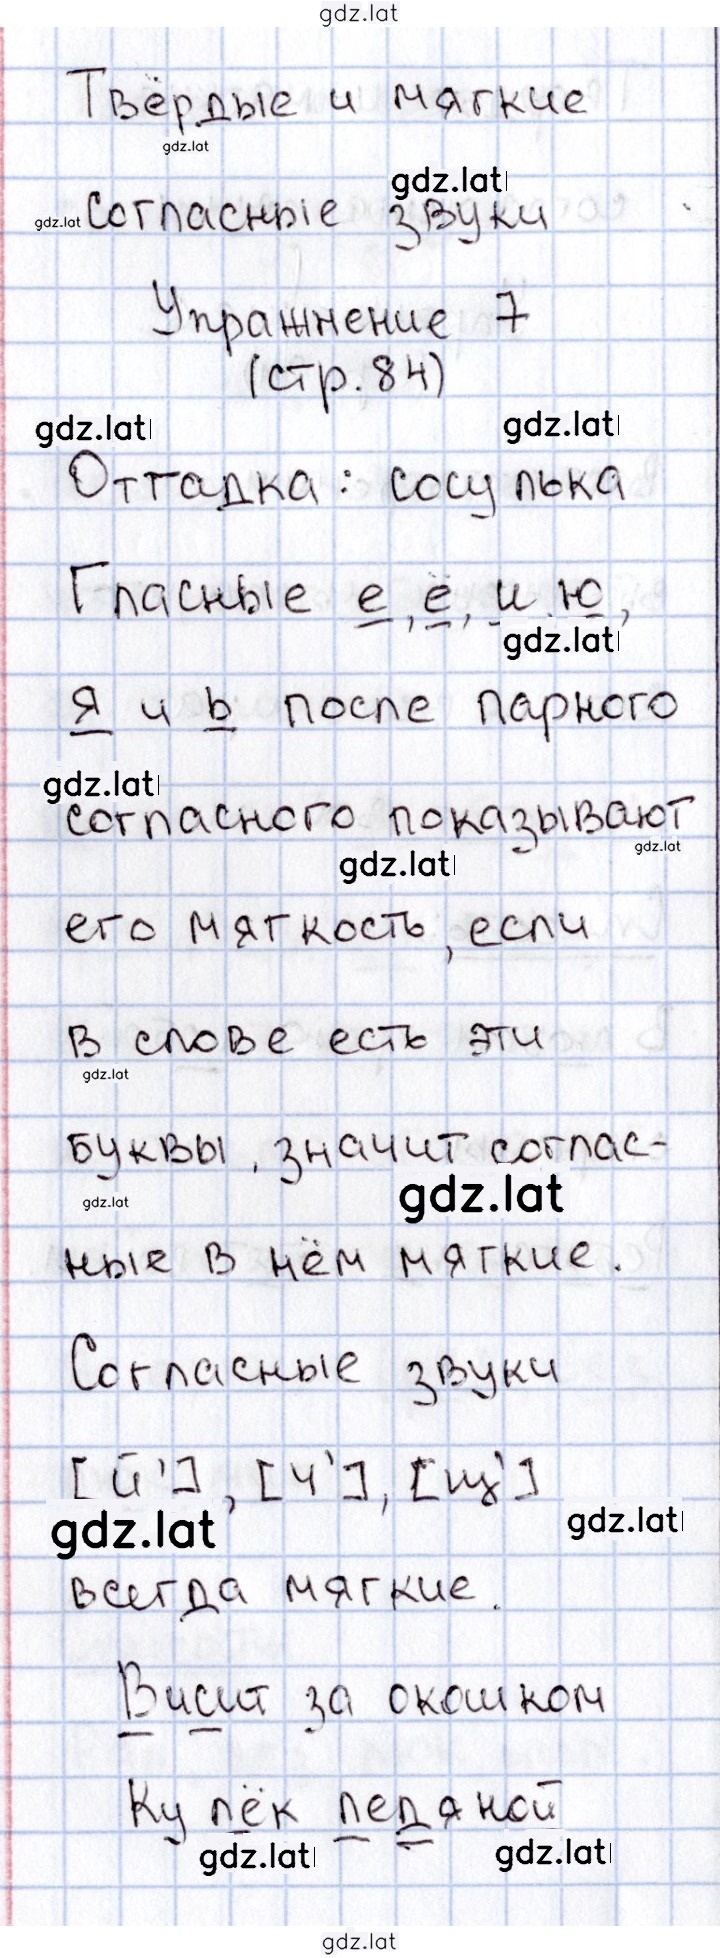 gdz.lat
Твёрдые и мягкие
gdz.lat
gdz.lat
gdz.lat согласные звуки
Упражнение 7
(стр. 84)
gdz.lat gdz.lat
Отгадка: сосулька
Гласные е, ё, и, ю,
gdz.lat
я и ь после парного
gdz.lat
согласного показывают
gdz.lat
gdz.lat
его мягкость, если
в слове есть эти
gdz.lat
буквы, значит соглас-
gdz.lat gdz.lat
ные в нём мягкие.
Согласные звуки
[й'], [ч'], [щ']
gdz.lat gdz.lat
всегда мягкие.
Висит за окошком
Кулёк ледяной
gdz.lat gdz.lat
gdz.lat